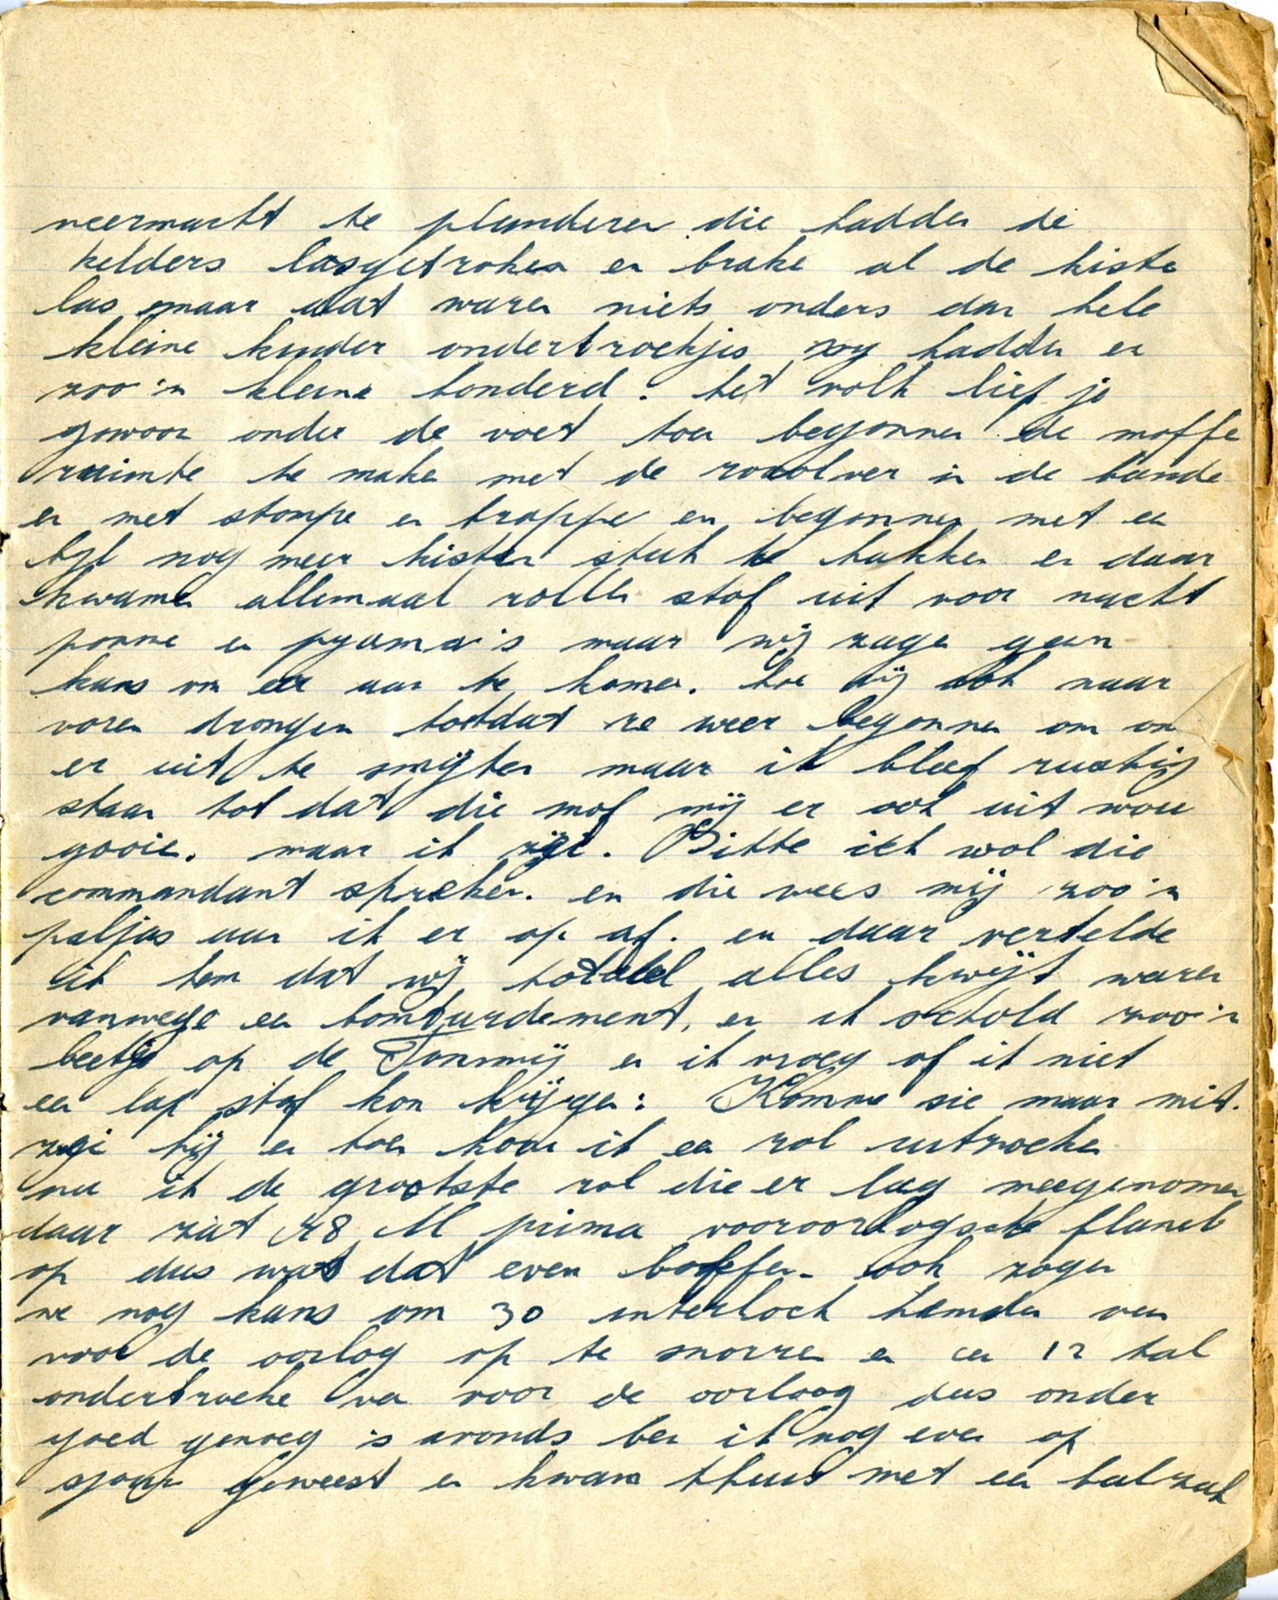 weermacht te plunderen die hadden de
kelders losgetroken en brake al de kiste
los maar dat waren niets anders dan hele
kleine kinder onderbroekjes wy hadden er
zoo'n kleine honderd. het volk lief je
gewoon onder de voet toen begonnen de moffe
ruimte te maken met de rovolver in de hande
en met stompe en trappe en begonnen met een
bijl nog meer kisten stuk te hakken en daar
kwamen allemaal rollen stof uit voor nacht
ponne en pyama's maar wij zage geen
kans om er aan te komen. hoe wij ook naar
voren drongen totdat ze weer begonnen om on
er uit te smijten maar ik bleef rustig
staan tot dat die mof mij er ook uit wou
gooie. maar ik zei. Bitte ich wol die
commandant spreken. en die wees mij zoo'n
paljas aan ik er op af. en daar vertelde
ik hem dat wij totaal alles kwijt waren
vanwege een bombardement, en ik schold zoo'n
beetje op de Tommij en ik vroeg of ik niet
een lap stof kon krijgen: Komme sie maar mit.
zei hij en toen kon ik een rol uitzoeken
nu ik de grootste rol die er lag meegenomen
daar zat 48 M prima vooroorlogsche flanel
op dus wat dat even boffen. ook zagen
we nog kans om 30 interlock hemden van
voor de oorlog op te snorren en een 12 tal
onderbroeke van voor de oorloog dus onder
goed genoeg is avonds ben ik nog even op
sjouw geweest en kwam thuis met een balzak